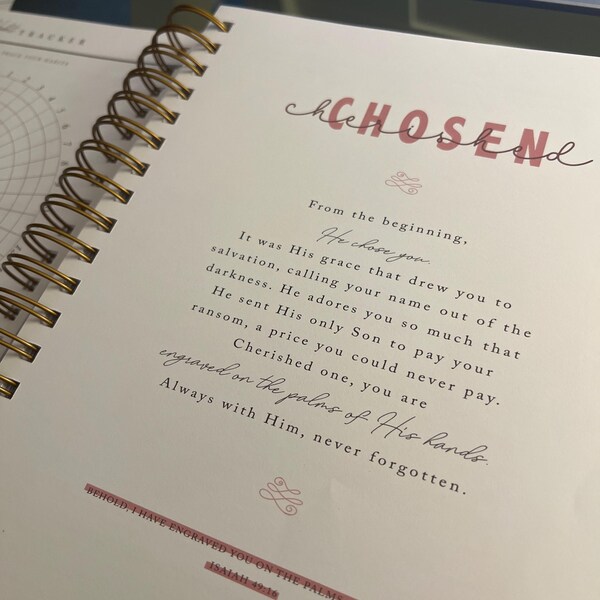 TRACKER
CHOSEN
cherished
From the beginning,
He chose you.
It was His grace that drew you to
salvation, calling your name out of the
darkness. He adores you so much that
He sent His only Son to pay your
ransom, a price you could never pay.
Cherished one, you are
engraved on the palms of His hands.
Always with Him, never forgotten.
BEHOLD, I HAVE ENGRAVED YOU ON THE PALMS
ISAIAH 49:16